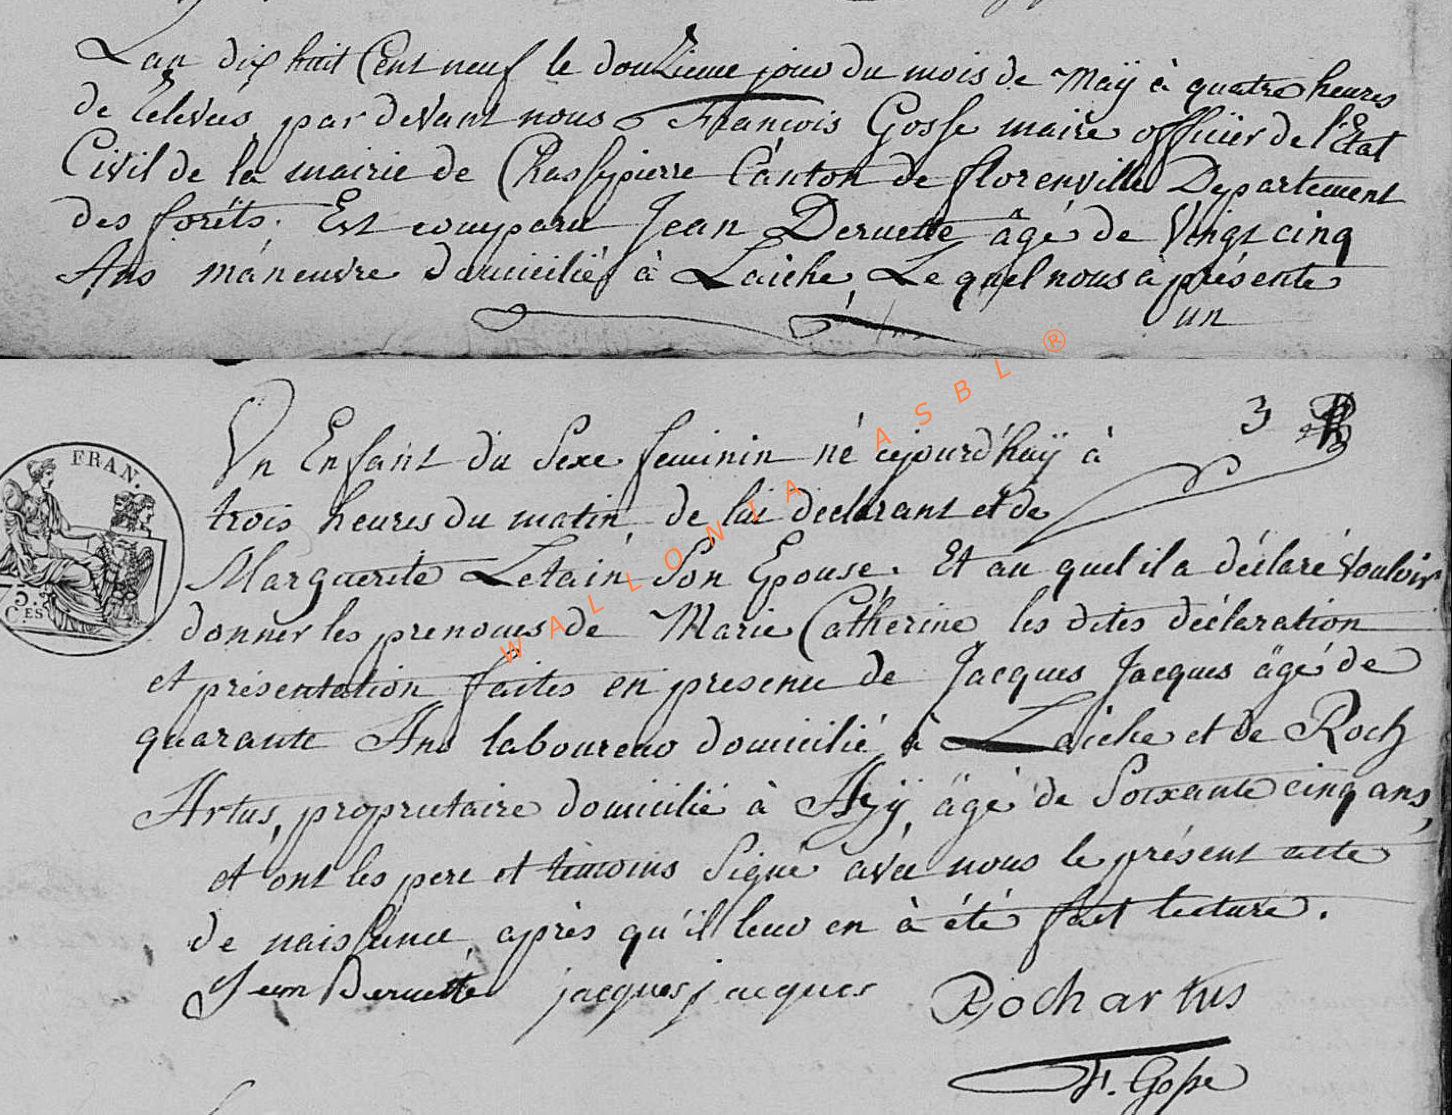 L'an dix huit Cent neuf le douzieme jour du mois de Maÿ à quatre heures
de Relevées par devant nous François Gosse maire officier de l'Etat
Civil de la mairie de Chassepierre Canton de florenville Departement
des forêts. Est comparu Jean Deruette âgé de Vingt cinq
Ans manœuvre domicilié à Laiche, Le quel nous à présenté
un
Un Enfant du Sexe feminin né cejourd'huÿ à
3
trois heures du matin de lui déclarant et de
Marguerite Letain Son Epouse. Et au quel il a déclaré Vouloir
donner les prenoms de Marie Catherine les dites déclaration
et présentation faites en presence de Jacques Jacques âgé de
quarante Ans laboureur domicilié à Laiche et de Roch
Artus, proprietaire domicilié à Azÿ, âgé de Soixante cinq ans,
et ont les pere et temoins Signé avec nous le présent acte
de naissance, après qu'il leur en à été fait lecture.
Jean Deruette jacques jacques Roch artus
F. Gosse
FRAN.
5 CES
WALLONIA ASBL ®